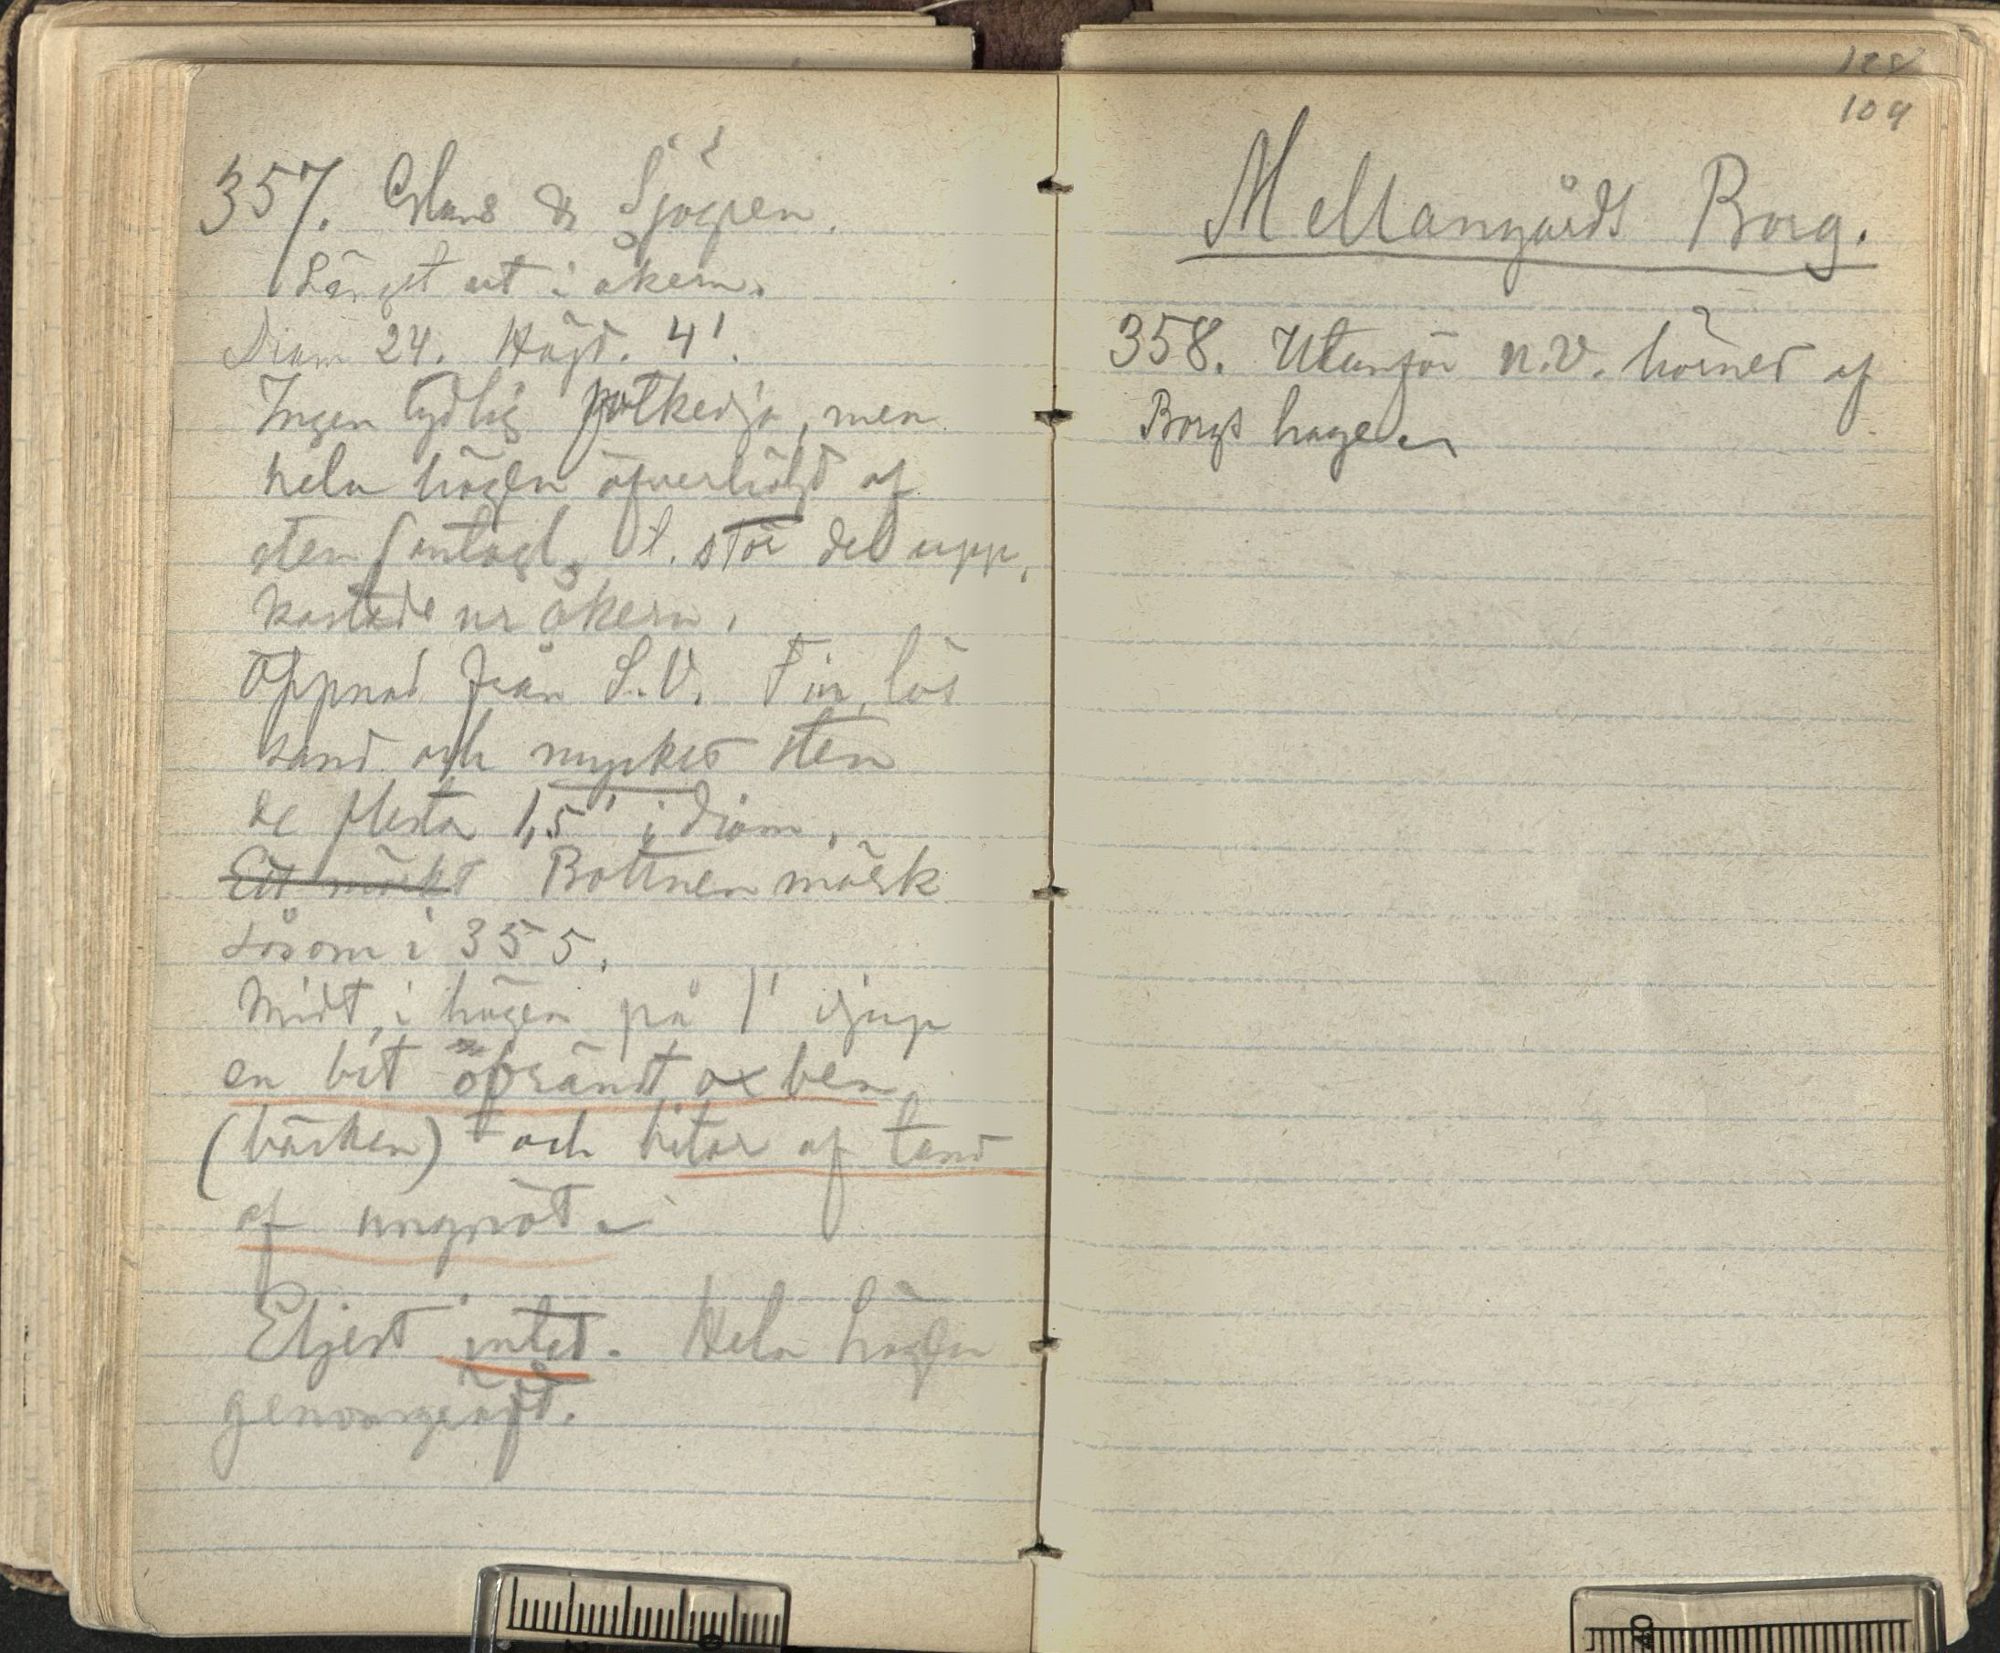 357. Clans & Sjögren.
Längst ut i åkern.
Diam 24. Höjd. 4'.
Ingen tydlig fotkedja, men
hela högen öfverhöljd af
sten (antagl. t. stör del upp,
kastade ur åkern.
Öppnad från S.V. Fin, lös
sand och mycket sten
de flesta 1,5' i diam.
Ett mörkt Bottnen mörk
såsom i 355.
Midt i högen på 1' djup
en bit obrändt oxben
(bäcken) och bitar af tand
af ungnöt.
Eljest intet. Hela högen
genomgräfd.
128
109
Mellangårds Borg.
358. Utanför n.V. hörnet af
Borgs hagen